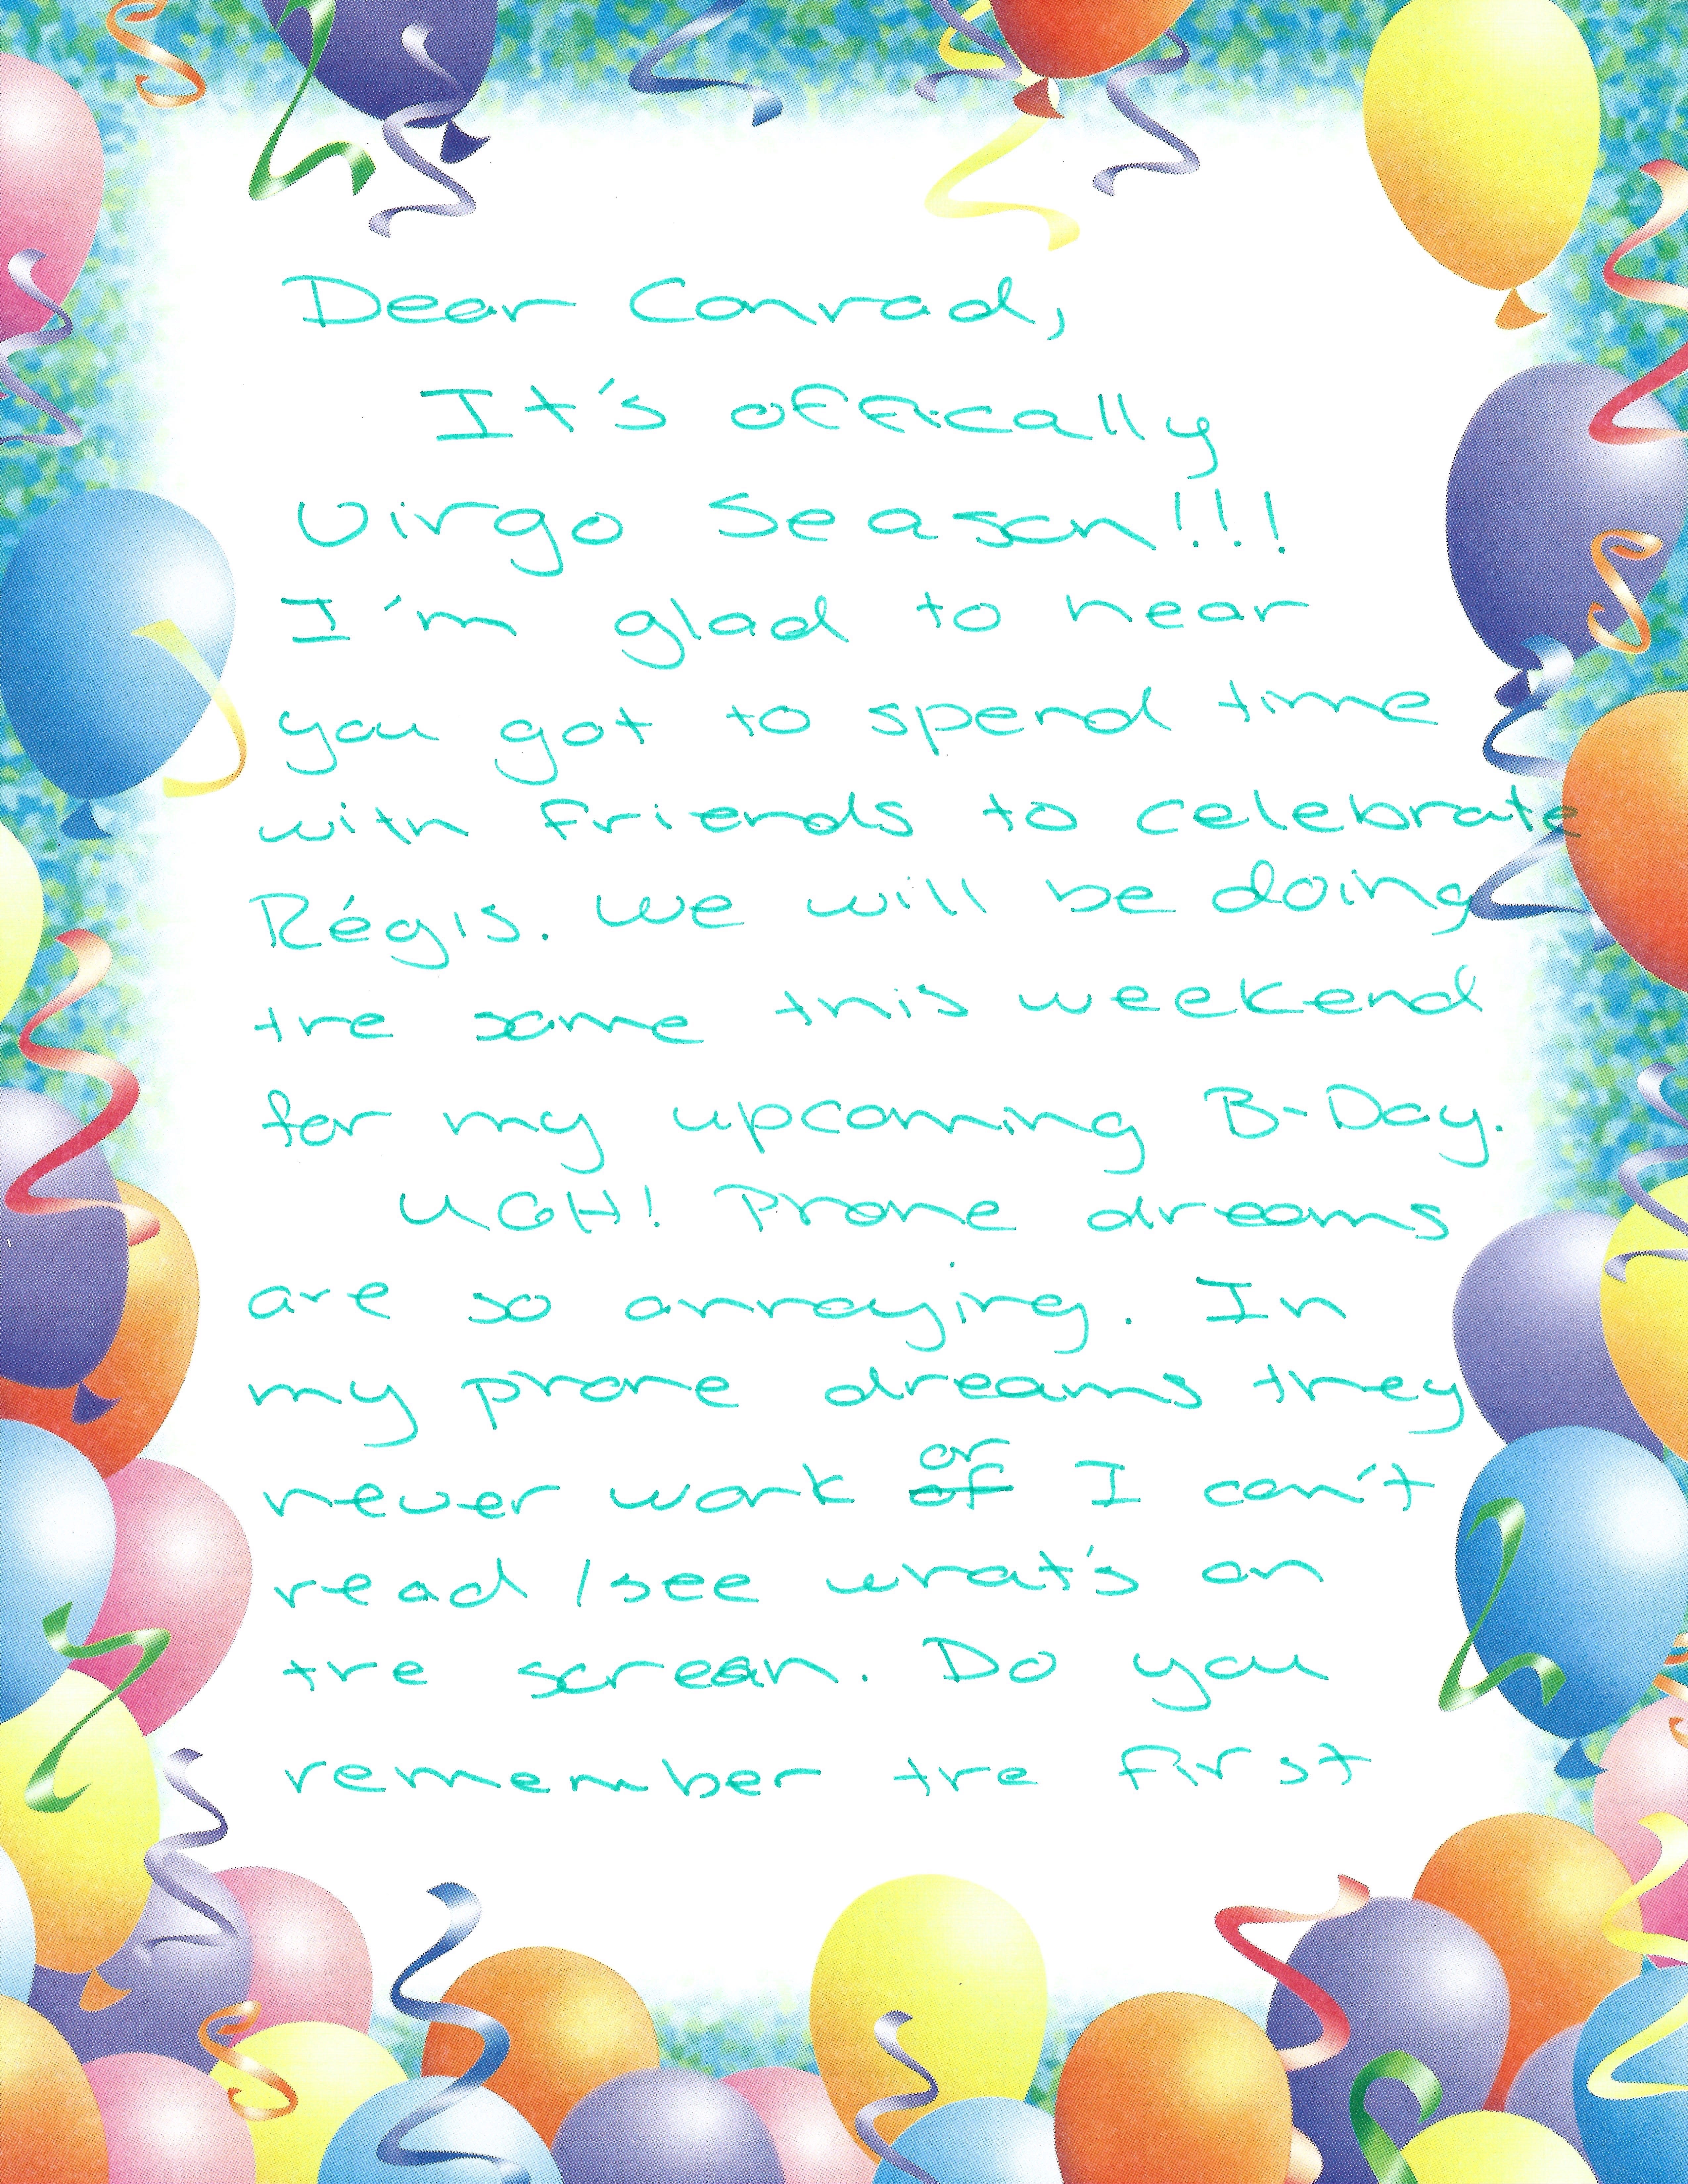 Dear Conrad,
It's offically
Virgo Season!!!
I'm glad to hear
you got to spend time
with friends to celebrate
Régis. We will be doing
the same this weekend
for my upcoming B-Day.
UGH! Phone dreams
are so annoying. In
my phone dreams they
never work ~~of~~ or I can't
read/see what's on
the screen. Do you
remember the first